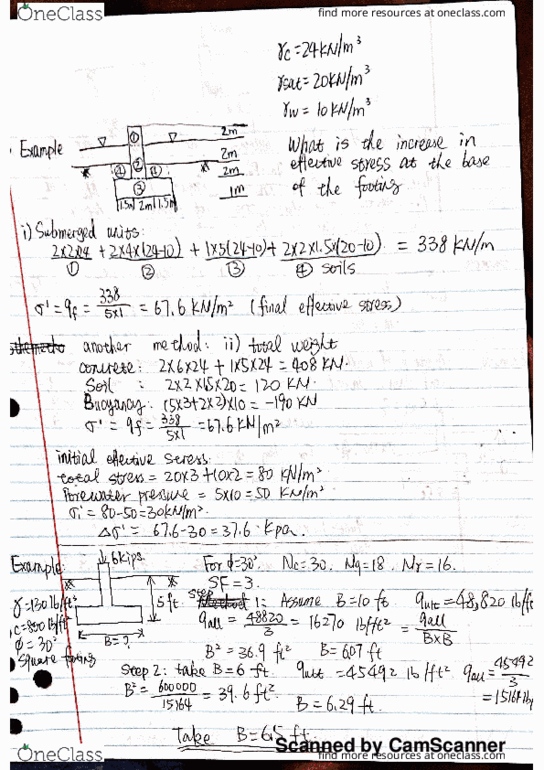 OneClass
find more resources at oneclass.com
γc = 24 kN/m³
γsat = 20 kN/m³
γw = 10 kN/m³
Example
2m
2m
2m
1m
① ② ③ ④ ④
1.5m 2m 1.5m
What is the increase in
effective stress at the base
of the footing
i) Submerged units:
2×2×24 + 2×4×(24-10) + 1×5(24-10) + 2×2×1.5×(20-10) = 338 kN/m
① ② ③ ④ soils
σ' = qf = 338/5×1 = 67.6 KN/m² (final effective stress)
another method: ii) total weight
concrete: 2×6×24 + 1×5×24 = 408 KN.
Soil : 2×2×1.5×20 = 120 KN.
Buoyancy: (5×3+2×2)×10 = -190 KN
σ' = qf = 338/5×1 = 67.6 KN/m²
initial effective stress.
total stress = 20×3+10×2 = 80 KN/m²
Porewater pressure = 5×10 = 50 KN/m²
σi' = 80-50 = 30 KN/m².
Δσ' = 67.6-30 = 37.6 kpa.
Example:
6 kips.
γ=130 lb/ft³
ϕ = 30°
Square footing
5 ft.
B = ?
For ϕ=30°, Nc=30, Nq=18, Nγ=16.
SF = 3.
Step 1: Assume B=10 ft. qult = 48,820 lb/ft
qall = 48820/3 = 16270 lb/ft² = qall/B×B
B² = 36.9 ft² B = 6.07 ft.
Step 2: take B=6 ft. qult = 45492 lb/ft² qall = 45492/3
B² = 600000/15164 = 39.6 ft². B = 6.29 ft. = 15164 lb
Take B = 6.5 ft.
Scanned by CamScanner
OneClass
find more resources at oneclass.com